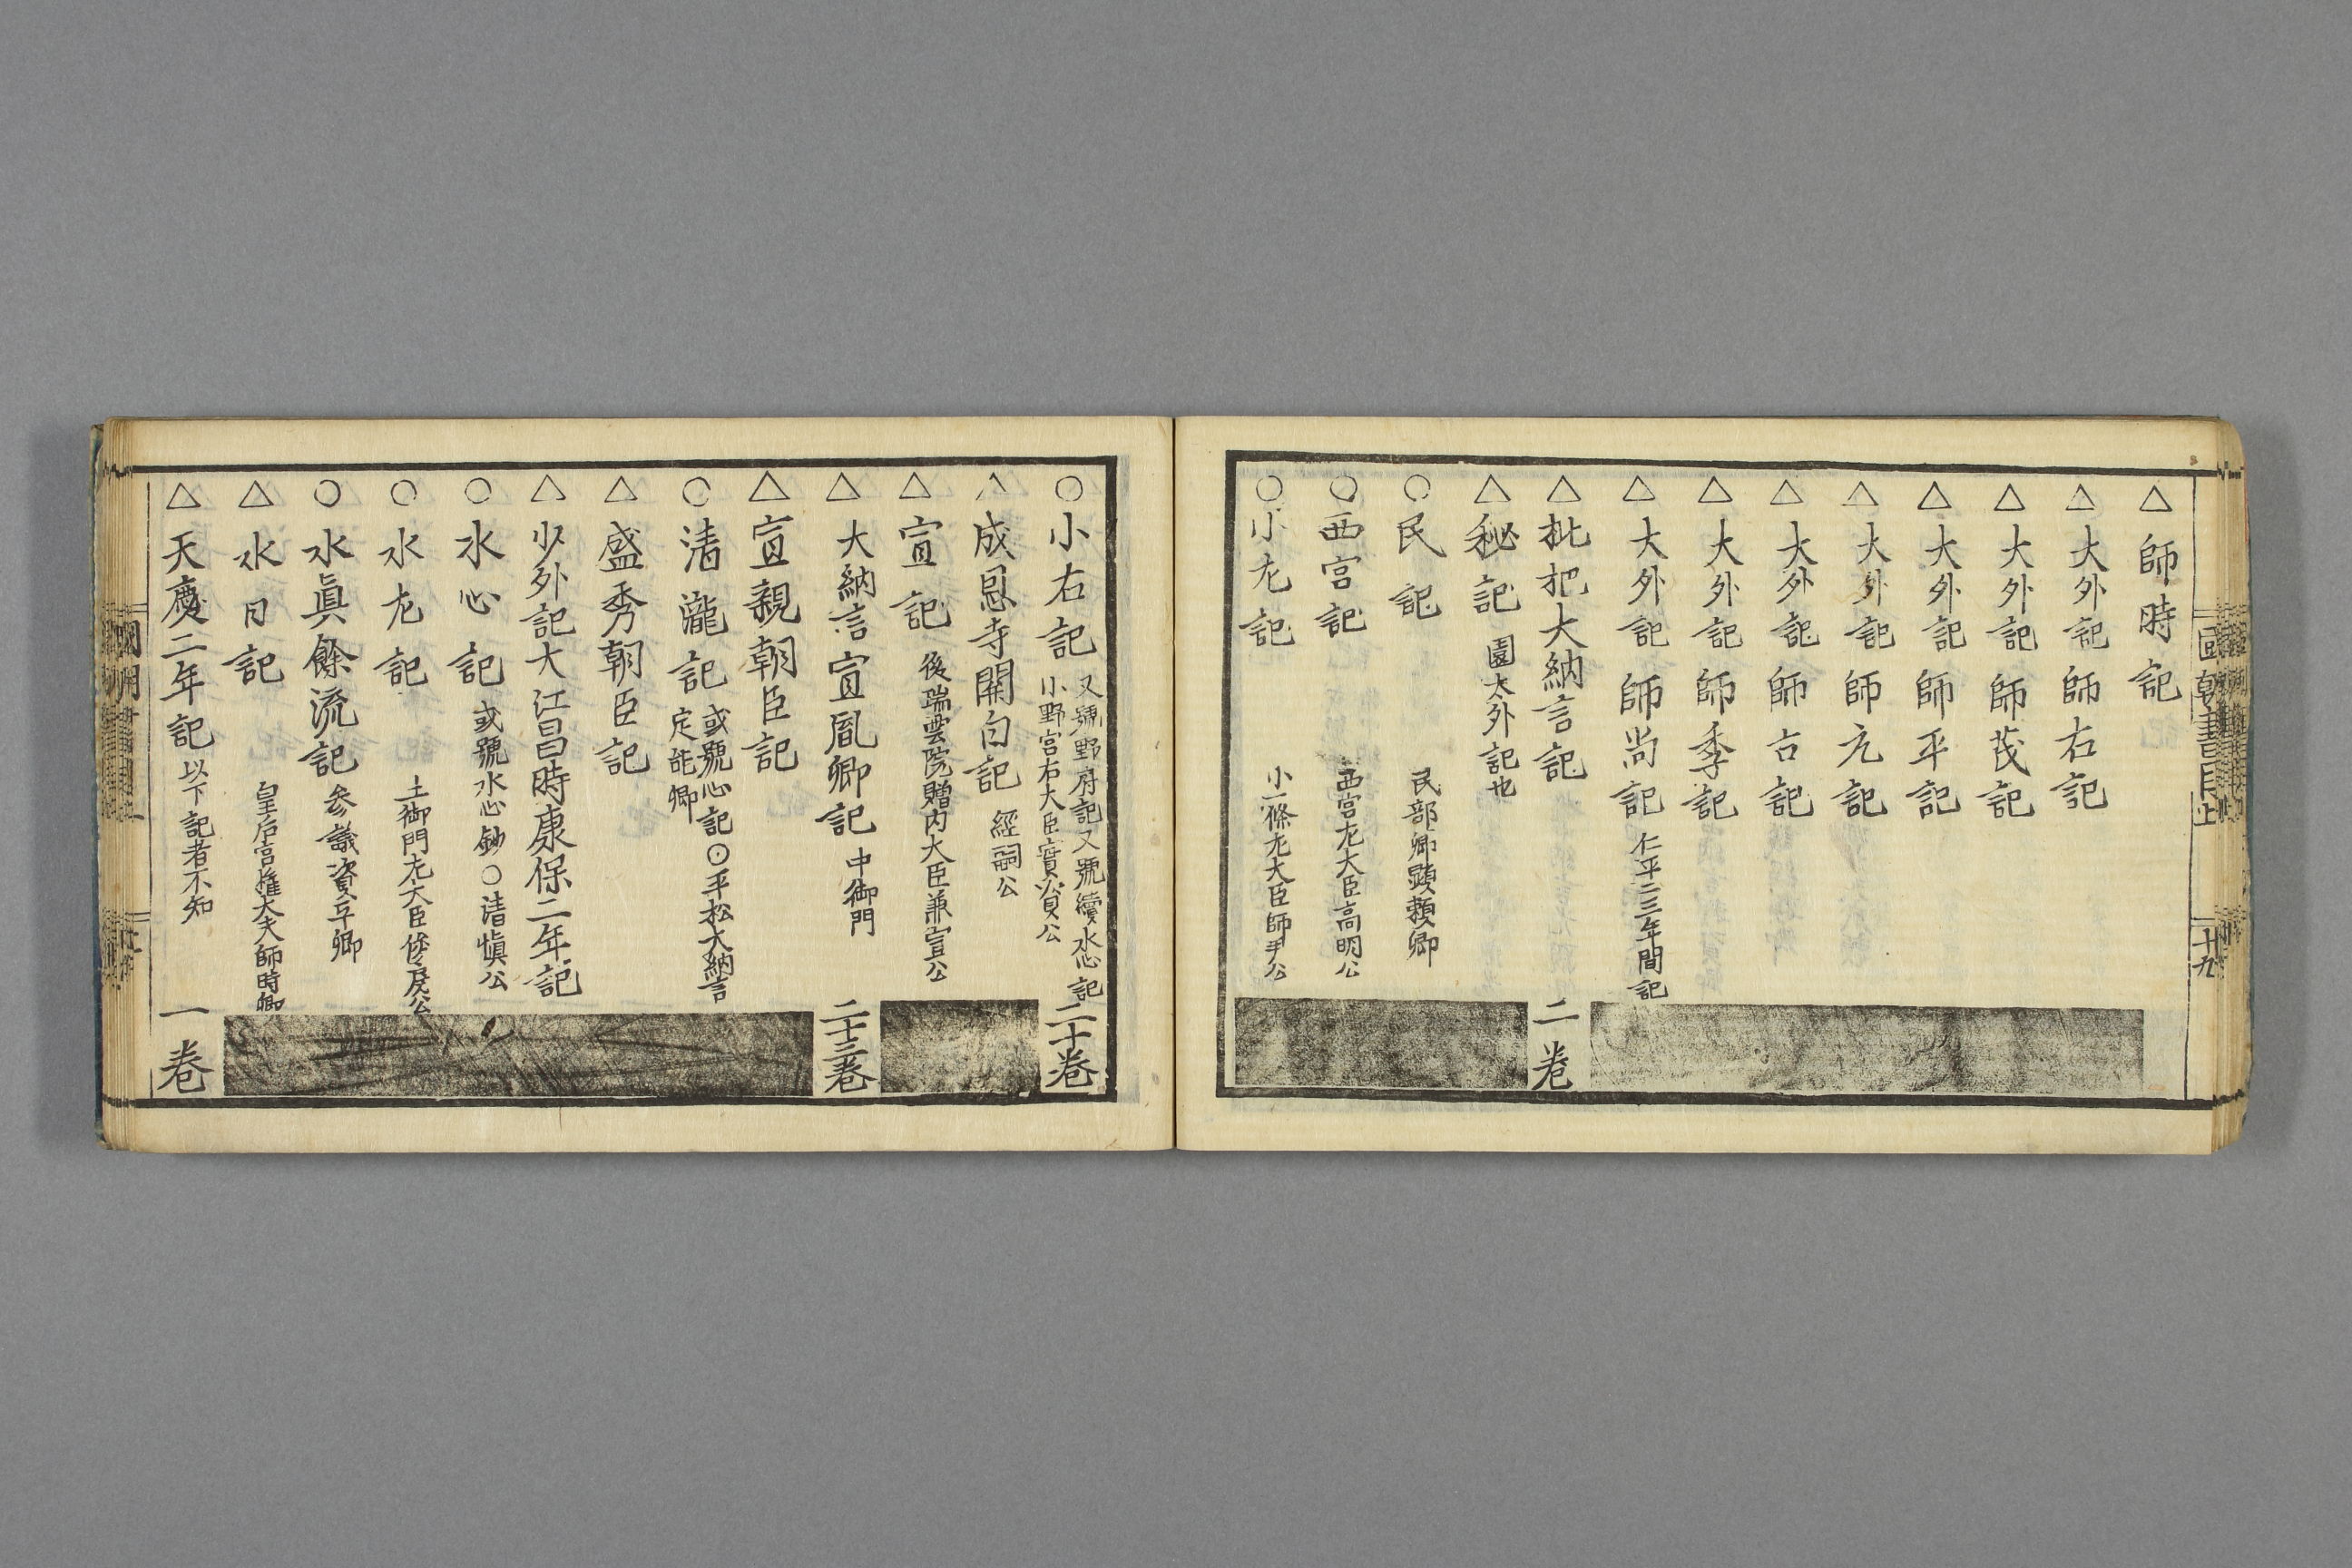 △師時記
△大外記師右記
△大外記師茂記
△大外記師平記
△大外記師元記
△大外記師古記
△大外記師季記
△大外記師尚記 仁平二三年間記
△枇杷大納言記 二卷
△秘記 園太外記也
○民記 民部卿顕頼卿
○西宮記 西宮左大臣高明公
○小左記 小一條左大臣師尹公
○小右記 又號野府記又號續水心記
小野宮右大臣實資公 二十卷
△成恩寺關白記 經嗣公
△宣記 後瑞雲院贈内大臣兼宣公
△大納言宣胤卿記 中御門 二十三卷
△宣親朝臣記
○清瀧記 或號心記○平松大納言
定能卿
△盛秀朝臣記
△少外記大江昌時康保二年記
○水心記 或號水心鈔○清愼公
○水左記 土御門左大臣俊房公
○水眞餘流記 参議資平卿
△水日記 皇后宮権大夫師時卿
△天慶二年記 以下記者不知 一卷
國朝書目上
十九